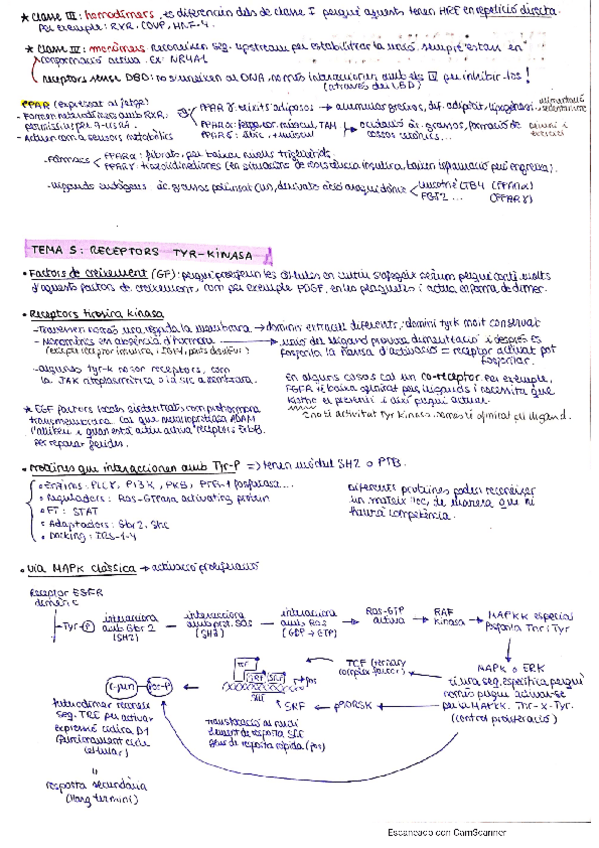 ★ Classe III: homodímers, es diferencien dels de classe I perquè aquests tenen HRE en repetició directa.
Per exemple: RXR, COUP, HNF-4.
★ Classe III: monòmers reconeixen seq. upstream per estabilitzar la unió, sempre estan en
conformació activa. Ex: NR4A1
receptors sense DBD: no s'uneixen al DNA, només interaccionen amb els per inhibir-los!
(a través del LBD)
PPAR (expressat al fetge)
- Formen heterodímers amb RXR,
permissius per 9-cis RA
- Actuen com a sensors metabòlics
PPARγ: teixits adiposos → acumular greixos, dif. adipòcit, lipogènesi
alimentació
sedentarisme
PPARα: fetge, cor, múscul, TAM
PPARδ: múscul
oxidació àc. grassos, formació de
cossos cetònics...
dejuni i
exercici
- Fàrmacs
PPARα: fibrats, per baixar nivells triglicèrids
PPARγ: tiazolidinediones (en situacions de resistència insulina, baixen inflamació però engreixa).
- lligands endògens àc. grassos poliinsat (LIV), derivats àcid araquidònic
LTB4 (PPARα)
PGJ2 ... (PPARγ)
TEMA 5: RECEPTORS TYR-KINASA
• Factors de creixement (GF): perquè proliferin les cèl·lules en cultiu s'afegeix sèrum perquè conté molts
d'aquests factors de creixement, com per exemple PDGF, en les plaquetes i actua en forma de dímer.
• Receptors tirosina kinasa
- Travessen només una vegada la membrana → dominis extracel diferents, domini tyrk molt conservat
- Monòmers en absència d'hormona
(excepte receptor insulina, IGF1R, ponts disulfur)
unió del lligand provoca dimerització i després es
fosforila la nansa d'activació = receptor activat pot
fosforilar.
- alguns tyr-k no són receptors, com
la JAK citoplasmàtica o la src a membrana.
En alguns casos cal un co-receptor. Per exemple,
FGFR té baixa afinitat pels lligands i necessita que
klotho el presenti i així pugui activar.
no té activitat Tyr kinasa, només té afinitat pel lligand.
★ EGF factors locals sintetitzats com proteohormona
transmembrana cal que metaloproteasa ADAM
l'alliberi i quan està actiu activa receptors ErbB.
Per reparar ferides.
• Proteïnes que interaccionen amb Tyr-P => tenen mòdul SH2 o PTB.
• Enzims: PLCγ, PI3K, PKB, PTP-1 fosfatasa....
• Reguladors: Ras-GTPasa activating protein
• FT: STAT
• Adaptadors: Gbr2, Shc
• Docking: IRS-1-4
Diferents proteïnes poden reconèixer
un mateix lloc, de manera que hi
haurà competència.
• Via MAPK clàssica → activació proliferació
Receptor EGFR
dimèric
Tyr-P
interacciona
amb Gbr2
(SH2)
interacciona
amb prot. SOS
(SH3)
interacciona
amb RAS
(GDP → GTP)
Ras-GTP
activa
RAF
kinasa
MAPKK especial
fosforila Thr i Tyr
MAPK o ERK
té una seq. específica perquè
només pugui activar-se
per la MAPKK. Thr-X-Tyr.
(control proliferació)
TCF (ternary
complex factor)
p90RSK
SRF
TCF
SRF SRF
fos
SRE
Translocació al nucli
element de resposta SRE
gens de resposta ràpida (fos)
c-jun
fos-P
heterodímer reconeix
seq. TRE per activar
expressió ciclina D1
(funcionament cicle
cel·lular)
resposta secundària
(llarg termini)
Escaneado con CamScanner